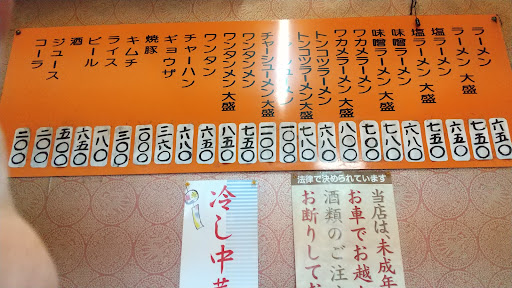 ラーメン 六五〇
ラーメン 大盛 七五〇
塩ラーメン 六五〇
塩ラーメン 大盛 七五〇
味噌ラーメン 六八〇
味噌ラーメン 大盛 七八〇
ワカメラーメン 七〇〇
ワカメラーメン 大盛 八〇〇
トンコツラーメン 六八〇
トンコツラーメン 大盛 七八〇
チャーシューメン 一〇〇〇
チャーシューメン 大盛
ワンタンメン 七五〇
ワンタンメン 大盛 八五〇
ワンタン 六五〇
チャーハン 七五〇
ギョウザ 三六〇
焼豚
キムチ 三〇〇
ライス 一八〇
ビール 六五〇
酒 五〇〇
ジュース 二〇〇
コーラ 二〇〇
法律で決められています
当店は、未成年
お車でお越
酒類のご注
お断りしてお
冷し中華